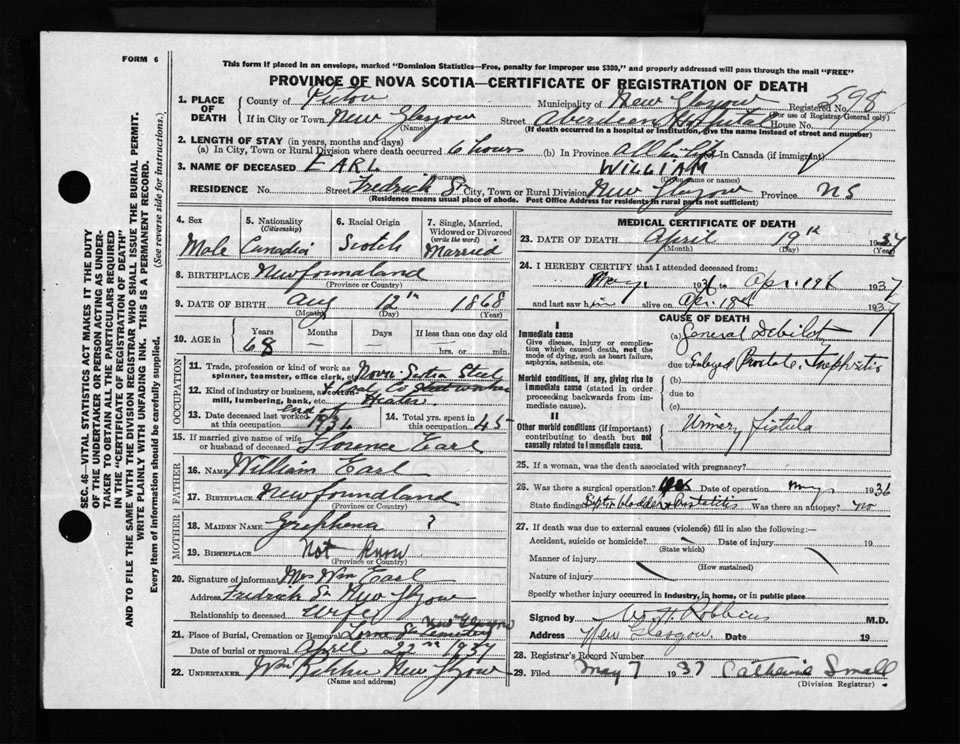 FORM 6
This form if placed in an envelope, marked "Dominion Statistics—Free, penalty for improper use $300," and properly addressed will pass through the mail "FREE"
PROVINCE OF NOVA SCOTIA—CERTIFICATE OF REGISTRATION OF DEATH
SEC. 46—VITAL STATISTICS ACT MAKES IT THE DUTY
OF THE UNDERTAKER OR PERSON ACTING AS UNDER-
TAKER TO OBTAIN ALL THE PARTICULARS REQUIRED
IN THE "CERTIFICATE OF REGISTRATION OF DEATH"
AND TO FILE THE SAME WITH THE DIVISION REGISTRAR WHO SHALL ISSUE THE BURIAL PERMIT.
WRITE PLAINLY WITH UNFADING INK. THIS IS A PERMANENT RECORD.
Every item of information should be carefully supplied. (See reverse side for instructions.)
1. PLACE OF DEATH County of Pictou Municipality of New Glasgow Registered No. 598
(For use of Registrar-General only)
If in City or Town New Glasgow Street Aberdeen Hospital House No.
(Name) (If death occurred in a hospital or institution, give the name instead of street and number)
2. LENGTH OF STAY (in years, months and days)
(a) In City, Town or Rural Division where death occurred 6 hours (b) In Province all his life In Canada (if immigrant)
3. NAME OF DECEASED EARL WILLIAM
(Surname) (Given name or names)
RESIDENCE No. Street Fredrick St City, Town or Rural Division New Glasgow Province NS
(Residence means usual place of abode. Post Office Address for residents in rural parts not sufficient)
4. Sex Male
5. Nationality (Citizenship)
6. Racial Origin Scotch
7. Single, Married, Widowed or Divorced (write the word) Married
8. BIRTHPLACE Newfoundland
(Province or Country)
9. DATE OF BIRTH Aug 12th 1868
(Month) (Day) (Year)
10. AGE in Years 68 Months — Days — If less than one day old hrs. or min.
OCCUPATION
11. Trade, profession or kind of work as spinner, teamster, office clerk, etc. Nova Scotia Steel
12. Kind of industry or business, as cotton-mill, lumbering, bank, etc. & Coal Co Heater
13. Date deceased last worked at this occupation end of 1936
14. Total yrs. spent in this occupation 45
15. If married give name of wife or husband of deceased Florence Earl
FATHER
16. NAME William Earl
17. BIRTHPLACE Newfoundland
(Province or Country)
MOTHER
18. MAIDEN NAME ?
19. BIRTHPLACE Not know
(Province or Country)
20. Signature of informant Mrs Wm Earl
Address Fredrick St New Glasgow
Relationship to deceased Wife
21. Place of Burial, Cremation or Removal Lorne St Cemetery New Glasgow
Date of burial or removal April 22nd 1937
22. UNDERTAKER Wm New Glasgow
(Name and address)
MEDICAL CERTIFICATE OF DEATH
23. DATE OF DEATH April 19th 1937
(Month) (Day) (Year)
24. I HEREBY CERTIFY that I attended deceased from:
May 1936 to Apr. 19th 1937
and last saw him alive on Apr. 19th 1937
CAUSE OF DEATH
I
Immediate cause
Give disease, injury or complication which caused death, not the mode of dying, such as heart failure, asphyxia, asthenia, etc.
(a) General Debility
due to Enlarged Prostate, Nephritis
Morbid conditions, if any, giving rise to immediate cause (stated in order proceeding backwards from immediate cause).
(b)
due to
(c)
II
Other morbid conditions (if important) contributing to death but not causally related to immediate cause.
Urinary Fistula
25. If a woman, was the death associated with pregnancy?
26. Was there a surgical operation? yes Date of operation May 1936
State findings bladder & Prostatitis Was there an autopsy? no
27. If death was due to external causes (violence) fill in also the following:—
Accident, suicide or homicide? Date of injury 19
(State which)
Manner of injury
(How sustained)
Nature of injury
Specify whether injury occurred in Industry, in home, or in public place
Signed by W H Robbins M.D.
Address New Glasgow Date 19
28. Registrar's Record Number
29. Filed May 7 1937 Catherine Small
(Division Registrar)